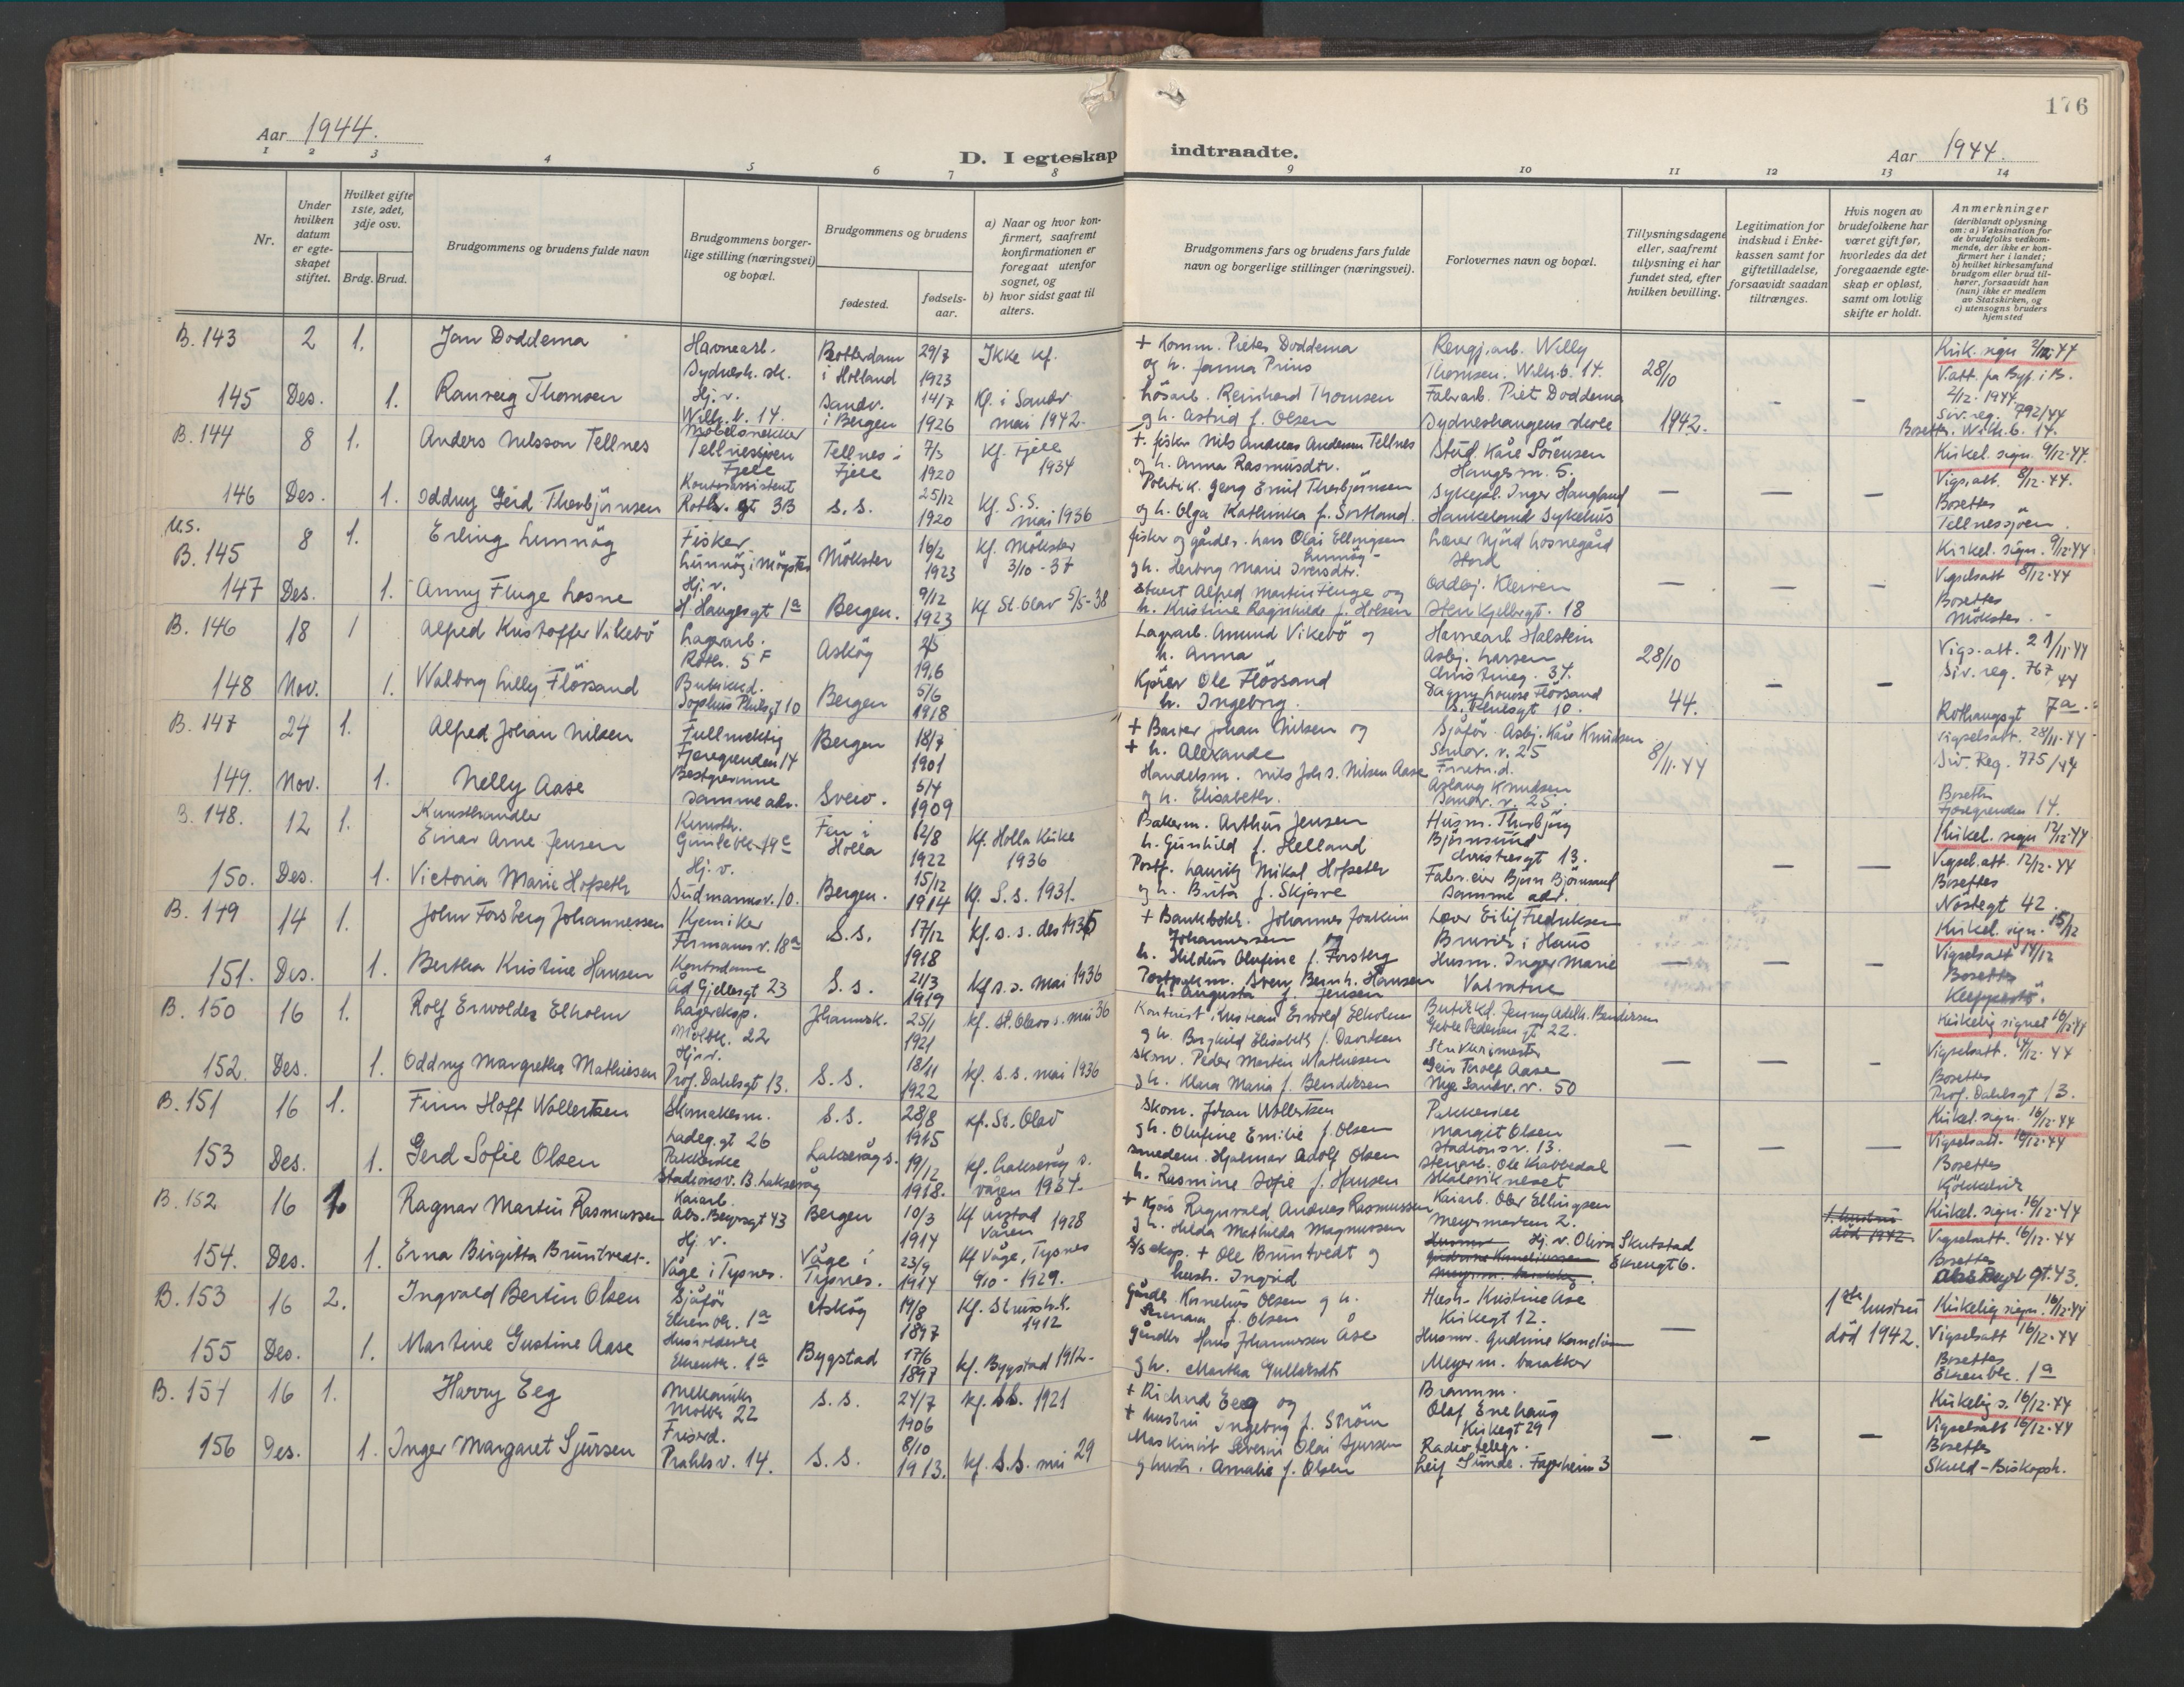 176
Aar 1944.
D. I egteskap indtraadte.
Aar 1944.
1 2 3 4 5 6 7 8 9 10 11 12 13 14
Nr.
Under hvilken datum er egteskapet stiftet.
Hvilket gifte 1ste, 2det, 3dje osv.
Brdg. Brud.
Brudgommens og brudens fulde navn
Brudgommens borgerlige stilling (næringsvei) og bopæl.
Brudgommens og brudens
fødested.
fødselsaar.
a) Naar og hvor konfirmert, saafremt konfirmationen er foregaat utenfor sognet, og
b) hvor sidst gaat til alters.
Brudgommens fars og brudens fars fulde navn og borgerlige stillinger (næringsvei).
Forlovernes navn og bopæl.
Tillysningsdagene eller, saafremt tillysning ei har fundet sted, efter hvilken bevilling.
Legitimation for indskud i Enkekassen samt for giftetilladelse, forsaavidt saadan tiltrænges.
Hvis nogen av brudefolkene har været gift før, hvorledes da det foregaaende egteskap er opløst, samt om lovlig skifte er holdt.
Anmerkninger
(deriblandt oplysning om: a) Vaksination for de brudefolks vedkommende, der ikke er konfirmert her i landet; b) hvilket kirkesamfund brudgom eller brud tilhører, forsaavidt han (hun) ikke er medlem av Statskirken, og c) utensogns bruders hjemsted
B. 143 2 1. Jan Doddema Havnearb. Rotterdam 29/7 Ikke kf.
Sydnesh. sk. i Holland 1923
+ Komm. Pieter Doddema Rengj.arb. Willy Kirk. sign 2/12-44
og h. Janna Prins Thomsen. Wilh.b. 14. 28/10 V.att. fra Byf. i B.
145 Des. 1. Ranveig Thomsen Hj. v. Sandv. 14/7 Kf. i Sandv
Wilh. b. 14. i Bergen 1926 mai 1942.
Lösarb. Reinhard Thomsen Fabrarb. Piet Doddema 2/12-1944.
g h. Astrid f. Olsen Sydneshaugens skole 1942. Siv. reg. 792/44
Bosetter. Wilh. b. 14.
B. 144 8 1. Anders Nilsson Tellnes Möbelsnekker Tellnes i 7/3 Kf. Fjell
Fjell Fjell 1920 1934
+ fisker Nils Andreas Anderson Tellnes Stud. Kåre Sörensen Kirkel. sign. 9/12-44.
og h. Anna Rasmusdtr. Hauges m. 5. Vigs.att. 8/12-44.
146 Des. 1. Oddny Gerd Thorbjörnsen Kontorassistent S. S. 25/12 Kf. S.S.
Roths. gt 3B 1920 mai 1936
Politik. Georg Emil Thorbjörnsen Sykepl. Inger Haugland Bosettes
og h. Olga Kathinka f. Sortland. Haukeland Sykehus Tellnessjöen.
U.S.
B. 145 8 1. Erling Lunnög Fisker Mökster 16/2 Kf. Mökster
1923 3/10-37
fisker og gårdbr. Hans Olai Ellingsen Lunnög Lærer Njörd Losnegård Stord Kirkel. sign. 9/12-44
g h. Herborg Marie Iversdtr. Vigselsatt 8/12-44
147 Des. 1. Anny Fluge Losne Hj. v. Bergen. 9/12 Kf St. Olav 5/5-38
H. Haugesgt 1a 1923
Stuert Alfred Martin Fluge og Oddbj. Kleiven Bosettes
h. Kristine Ragnhilde f. Holsen Sten Kjellsgt. 18 Mökster.
B. 146 18 1 Alfred Kristoffer Vikebö Lagerarb. Asköy
Roth. 5 F
Lagerarb. Amund Vikebö og Havnearb Halstein 28/10 Vigs.att. 21/11-44
h. Anna Asbj. Larsen Siv. reg. 767/44
148 Nov. 1. Walborg Lilly Flössand Butikkd. Bergen 5/6
Sophus Pihlsgt 10 1918
Kjörer Ole Flössand Dagny Lovise Flössand 44.
h. Ingeborg. S. Pihlsgt 10. Rothaugsgt 7a.
B. 147 24 1. Alfred Johan Nilsen Fullmektig Bergen 18/7
Fjæregrenden 14 1901
+ Barber Johan Nilsen og Sjåför Asbj. Kåre Knudsen vigselsatt. 28/11-44
+ h. Alexande Sandv. v. 25 8/11-44 Siv. Reg. 775/44
149. Nov. 1. Nelly Aase Bestyrerinne Sveio. 5/4
samme adr. 1909
Handelsm. Nils Joh. S. Nilsen Aase Aslaug Knudsen
og h. Elisabeth. Sandv. v. 25. Fjæregrenden 14.
B. 148. 12 1. Kunsthandler Einar Arne Jensen Fen i Holla 12/8 Kf. Holla Kirke
1922 1936
Bakerm. Arthur Jensen Husm. Thorbjörg Kirkel. sign 12/12-44
h. Gunhild f. Helland Björnsund Christiesgt 13. Vigsel.att. 12/12-44
150. Des. 1. Victoria Marie Hopseth Hj. v. Bergen. 15/12 Kf. S. s. 1931.
Sudmannsv. 10. 1914
Postf. Lauritz Mikal Hopseth Fabr.eier Björn Björnsund Bosettes
og h. Brita f. Skjerve samme adr. Nöstegt 42.
B. 149 14 1. John Forsberg Johannessen Kjemiker S.S. 17/12 Kf. s. s. des 1935
Formannsv. 18a 1918
+ Bankbokh. Johannes Joakim Johannessen og Lærer Eilif Fredriksen Kirkel. sign. 15/12
h. Hildur Olufine f. Forsberg Bruvik i Haus Vigselsatt 14/12
151. Des. 1. Bertha Kristine Hansen Kontordame S. s. 21/3 Kf s. s. Mai 1936
Ad Gjellesgt 23 1919
Sven Bernh. Hansen Husm. Inger Marie Bosettes
h. Augusta f. Jensen Valvatne
B. 150 16 1. Rolf Erwolder Elholm Lagereksp. Johannesk. 25/1 kf. St. Olavs s. mai 36
Möllbk. 22 1921
Kontorist Kristian Erwold Elholm Butikkd. Jenny Adelh. Bendixsen Kirkelig signet 16/12-44
g h. Borghild Elisabeth f. Davidsen Geble Pedersen gt 22. Vigselsatt. 14/12-44
152. Des. 1. Oddny Margretha Mathiesen Hj. v. S. S. 18/11 kf. s. s. mai 1936
Prof. Dahlsgt 13. 1922
Skom. Peder Martin Mathiesen Geir Torolf Aase Bosettes
g h. Klara Maria f. Bendixsen Nye Sandv. v. 50 Prof. Dahlsgt 13.
B. 151 16 1. Finn Hoff Wollertsen Skomakerm. S. S. 28/8 kf. St. Olav
Ladeg.gt 26 1915
Skom. Johan Wollertsen Pakkerske Kirkel. sign. 16/12-44
g h. Olufine Emilie f. Olsen Margit Olsen Stadionsv. 13. Vigselsatt. 16/12-44
153 Des. 1. Gerd Sofie Olsen Pakkerske Laksevåg s. 19/12 Kf. Laksevåg s.
Stadionsv. 13. Laksevåg 1918. våren 1934.
Smedem. Hjalmar Adolf Olsen Stenarb. Ole Krabbedal Bosettes
h. Rasmine Sofie f. Hansen
B. 152 16 1. Ragnar Martin Rasmussen Kaiarb. Bergen 10/3 Kf Årstad
Abs. Beyersgt 43 1914 Våren 1928
+ Kjörer Ragnvald Andreas Rasmussen Kaiarb. Olav Ellingsen 1. hustru Kirkel. sign. 16/12-44
g h. Hilda Mathilda Magnussen Meyermarken 2. död 1942. Vigselsatt. 16/12-44
154. Des. 1. Erna Birgitta Bruntvedt. Hj. v. Våge i 23/9 Kf Våge, Tysnes
Våge i Tysnes. Tysnes. 1914 9/10-1929.
S/S eksp. + Ole Bruntvedt og Hj. v. Olina Skutstad Bosettes
hustr. Ingrid Ekrengt 6. Abs Beyer gt. 43.
B. 153 16 2. Ingvald Bertin Olsen Sjåför Asköy 19/8 Kf. Strussh.
Ekrenbk. 1a 1897 1912
Gårdbr. Kornelius Olsen g h. Hush. Kristine Ase 1ste hustru Kirkelig sign. 16/12-44
f. Olsen Kirkegt 12. död 1942. Vigselsatt 16/12-44
155 Des. 1. Martine Gustine Aase Husholderske Bygstad 17/6 Kf. Bygstad 1912.
Ekrenbk. 1a 1897
Gårdbr Hans Johannesen Åse Husmr. Gudrine Kornelius Bosettes
g h. Martha Gullaksdtr Meyerm. barakker Ekrenbk. 1a
B. 154 16 1. Harry Eeg Mekaniker S. S. 24/7 kf. S.S. 1921
Möllbk 22 1906
+ Richard Eeg og Brannm. Kirkelig s. 16/12-44
+ hustru Ingeborg f. Ström Olaf Enehaug Kirkegt 29 Vigselsatt 16/12-44
156 Des. 1. Inger Margaret Sjursen Friserd. S. S. 8/10 kf. S.S. mai 29
Prahlsv. 14. 1913.
Maskinist Severin Olai Sjursen Radiotelegr. Bosettes
g hustr. Amalie f. Olsen Leif Sunde. Fagerheim 3